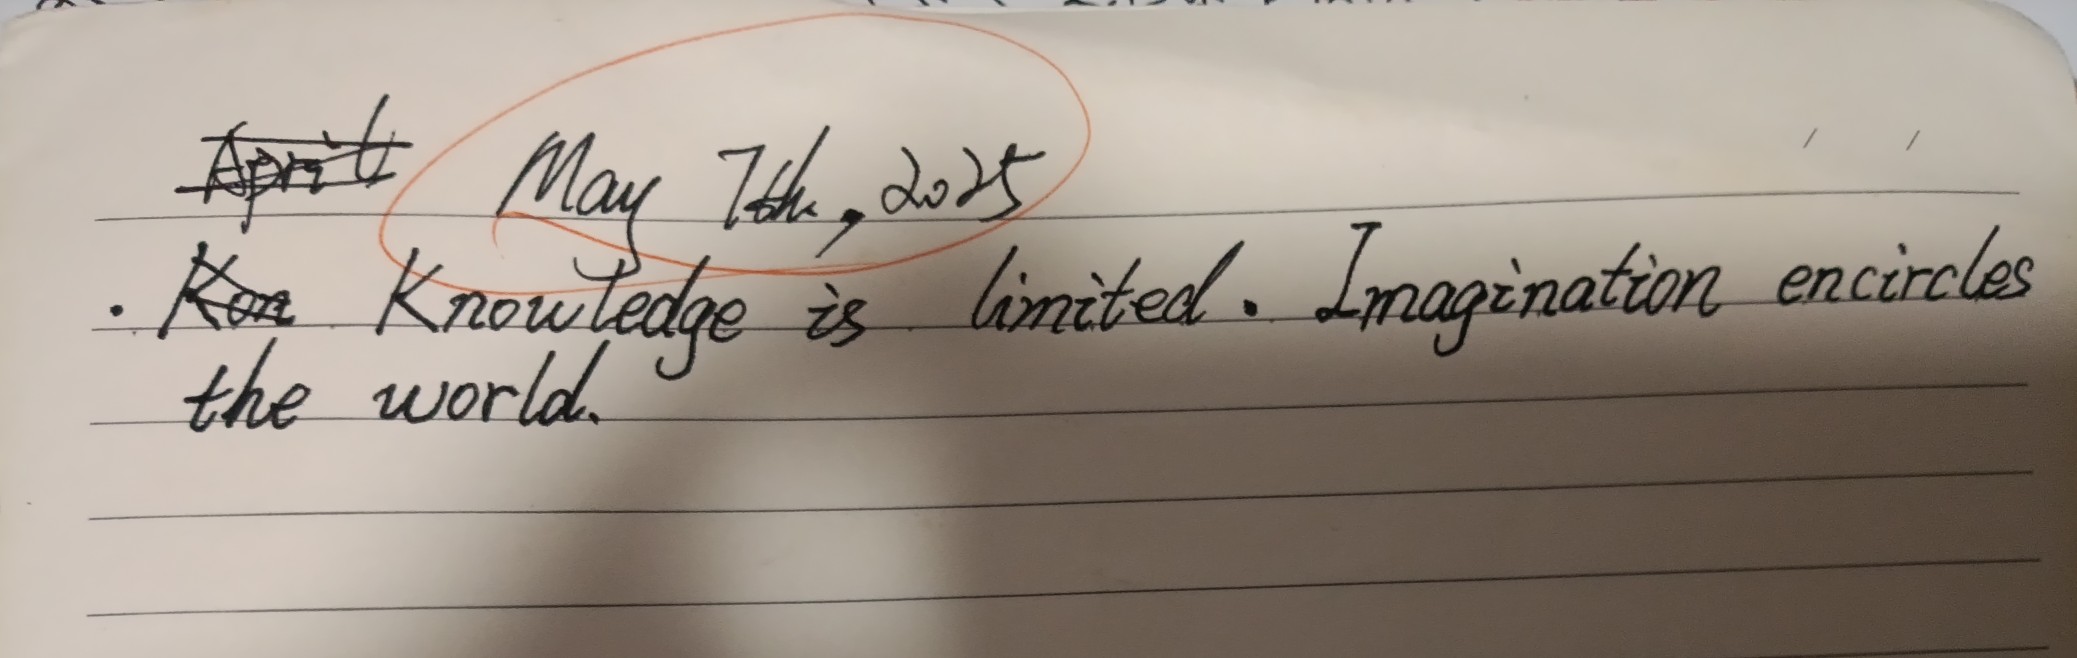 April May 7th, 2025
· Kon Knowledge is limited. Imagination encircles
the world.